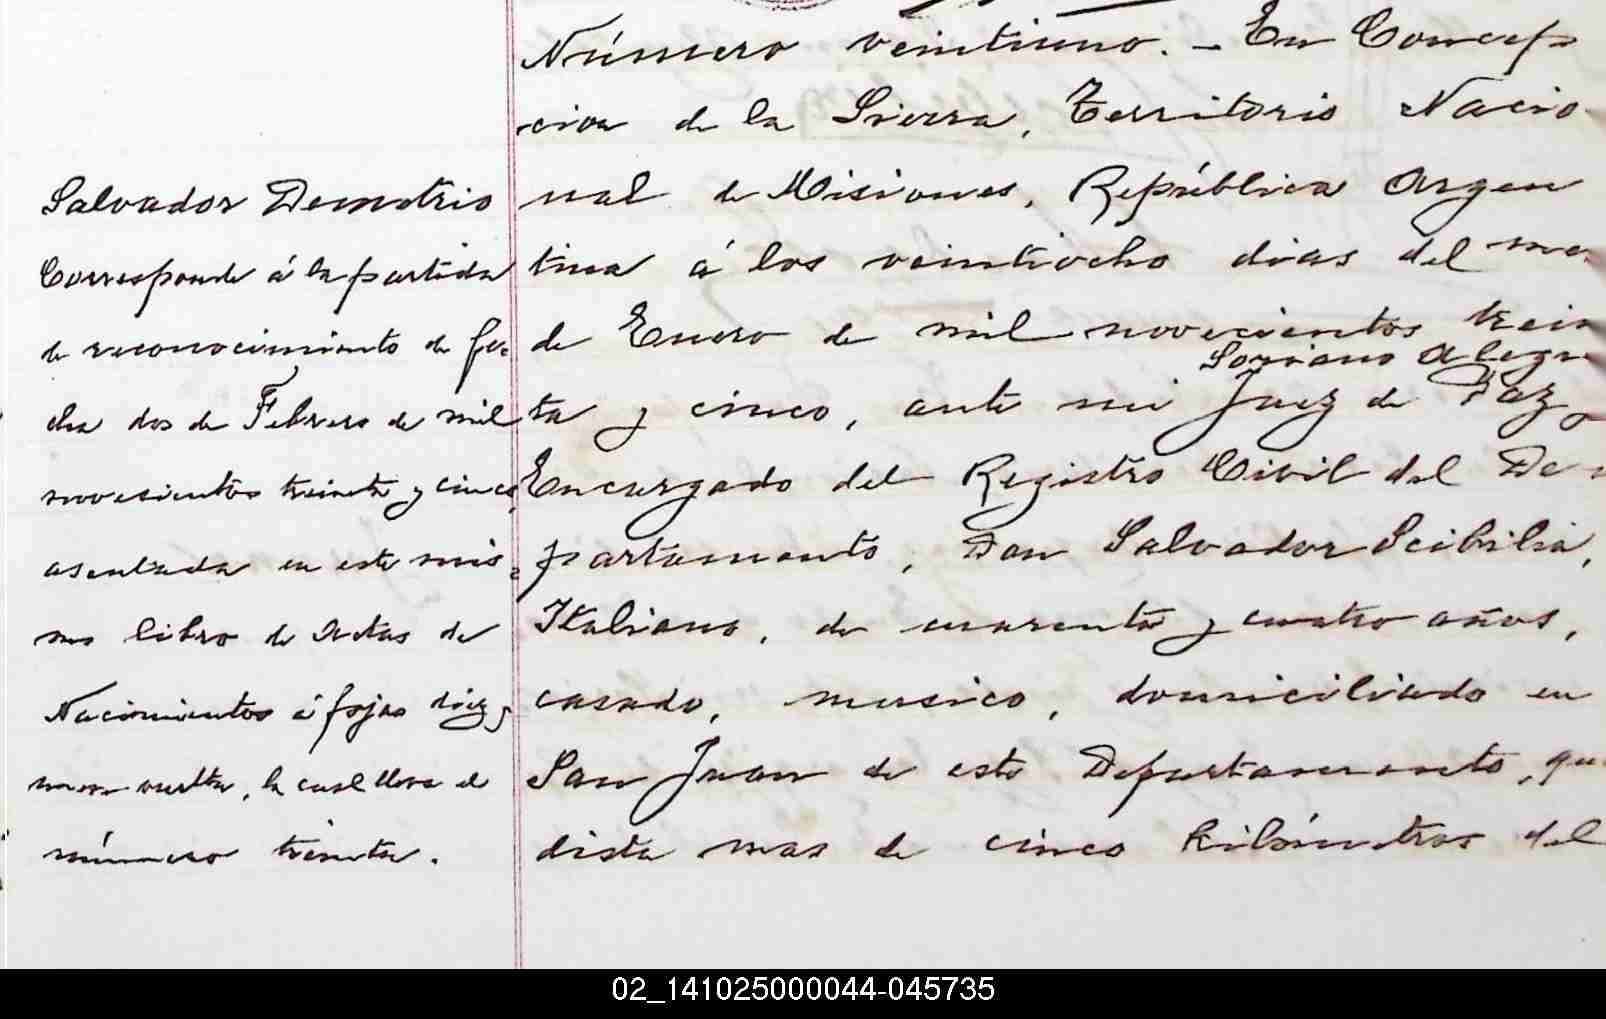 Salvador Demetrio
Corresponde á la partida
de reconocimiento de fe-
cha dos de Febrero de mil
novecientos treinta y cinco,
asentada en este mis-
mo libro de Actas de
Nacimientos á fojas diez y
nueve vuelta, la cual lleva el
número treinta.
Número veintiuno. - En Concep
cion de la Sierra, Territorio Nacio
nal de Misiones, República Argen
tina á los veintiocho dias del mes
de Enero de mil novecientos trein
Soriano Alegre
ta y cinco, ante mi Juez de Paz y
Encargado del Registro Civil del De-
partamento, Don Salvador Scibilia,
Italiano, de cuarenta y cuatro años,
casado, musico, domiciliado en
San Juan de este Departamento, que
dista mas de cinco kilómetros del
02_141025000044-045735